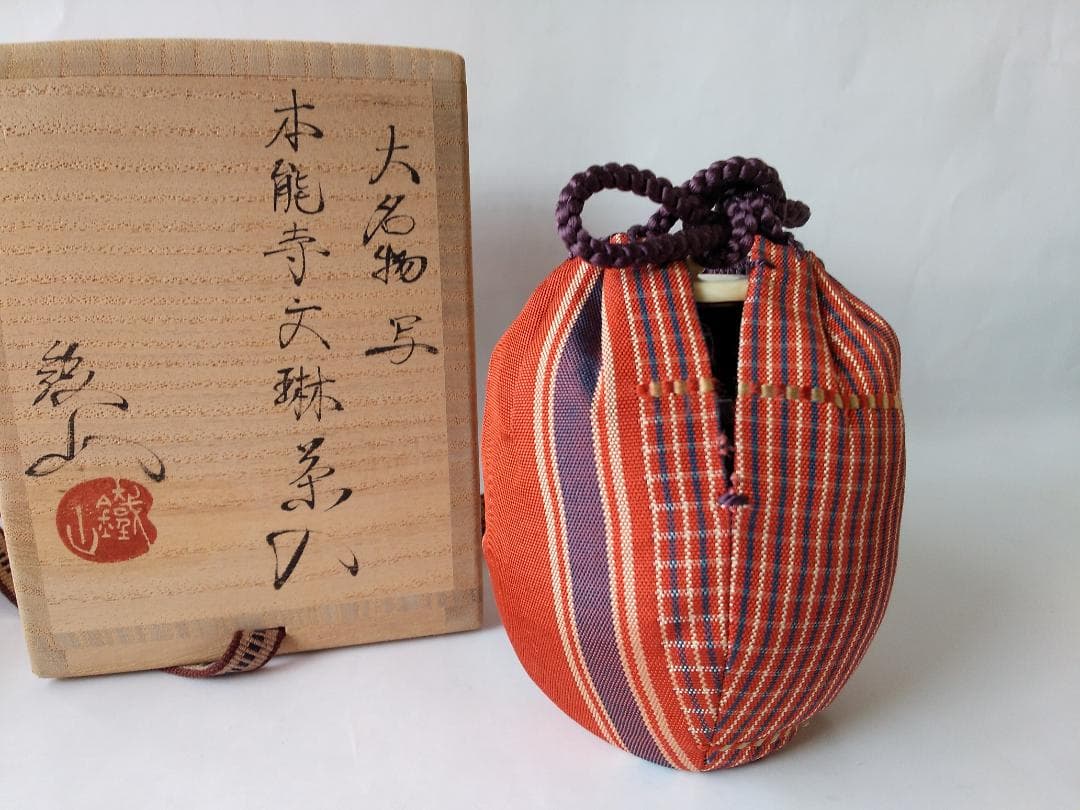 大名物 写
本能寺文琳茶入
鐵山